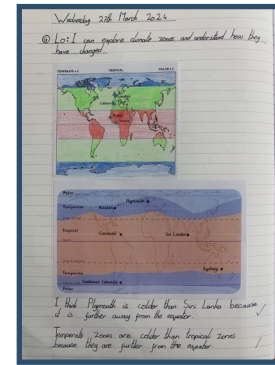 Wednesday 27th March 2024
Lo: I can explore climate zones and understand how they
have changed.
TEMPERATE x 2 TROPICAL POLAR x 2
Polar
Plymouth
Temperate
Tropical
Sri Lanka
Sydney
Temperate
Polar
I that Plymouth is colder than Suri Lanka because
it is further away from the equator.
Temperate zones are colder than tropical zones
because they are further from the equator.